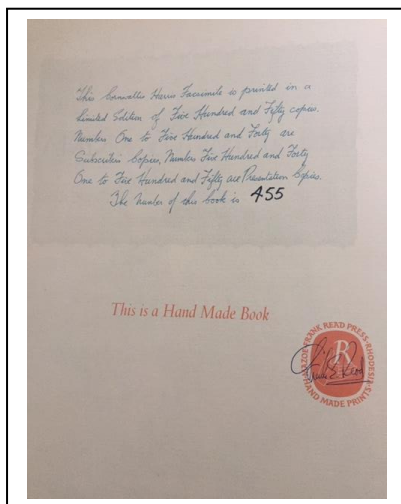 This Cornwallis Harris Facsimile is printed in a
Limited Edition of Five Hundred and Fifty copies.
Numbers One to Five Hundred and Forty are
Subscribers Copies, Numbers Five Hundred and Forty
One to Five Hundred and Fifty are Presentation Copies.
The Number of this book is 455
This is a Hand Made Book
FRANK READ PRESS-RHODESIA
HAND MADE PRINTS
R